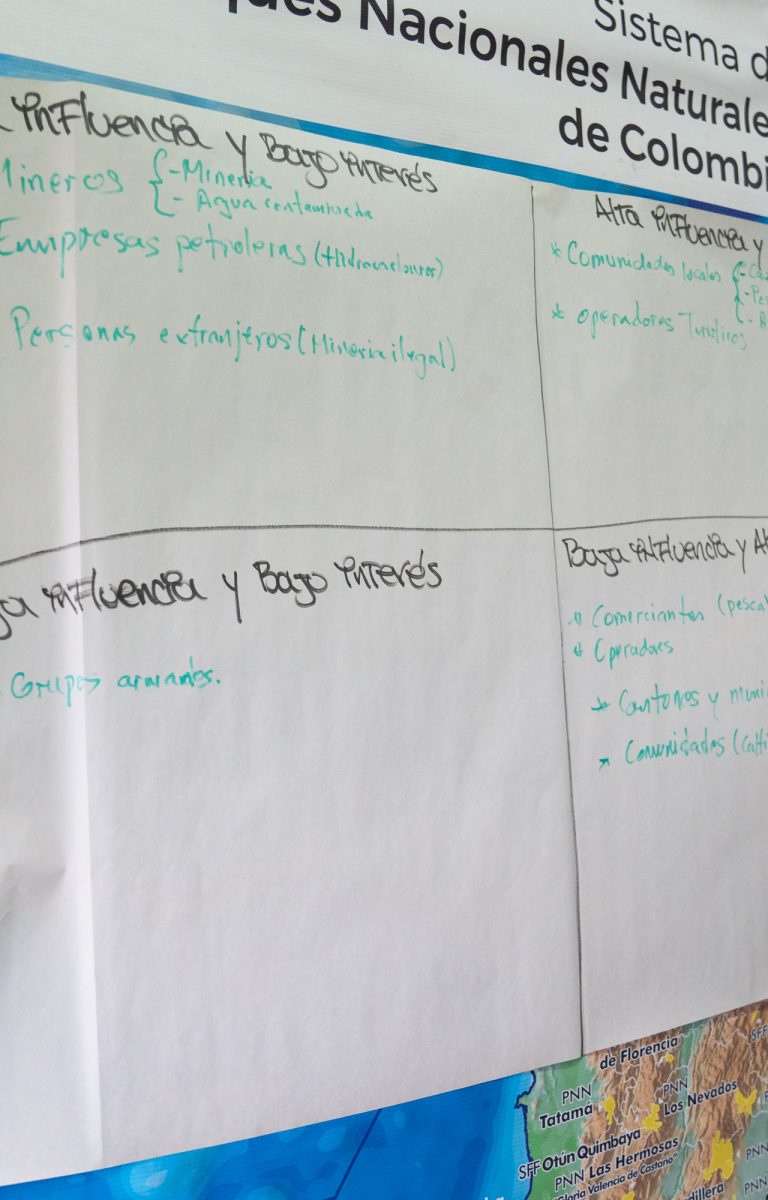 Sistema d
ques Nacionales Naturale
de Colombi
ynFluencia y Bajo ynterés
Mineros { - Minería
- Agua contaminada
Empresas petroleras (Hidrocarburos)
Personas extranjeros (Minería ilegal)
Alta ynFluencia y
* Comunidades locales { - Ca
- Pes
- A
* operadores Turisticos
ja ynFluencia y Bajo ynterés
Grupos armados.
Baja ynFluencia y Al
* Comerciantes (pesca
* Operadores
* Cantones y muni
* Comunidades
de Florencia
SFF
PNN
Tatamá
PNN
Los Nevados
SFF Otún Quimbaya
PNN Las Hermosas
"Gloria Valencia de Castaño"
PNN
dillera
PNN